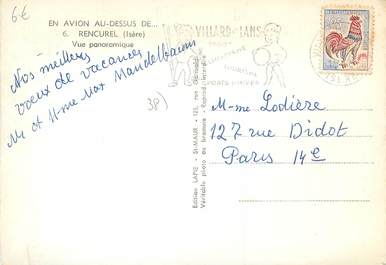 6€
EN AVION AU-DESSUS DE...
6. RENCUREL (Isère)
Vue panoramique
VILLARD LANS
SPORTS HIVER
Nos meilleurs
voeux de vacances
Mr et Mme Max Mandelbaum
3P)
Mme Lodière
127 rue Didot
Paris 14e
Edition LAPIE - St-MAUR
Véritable photo au bromure